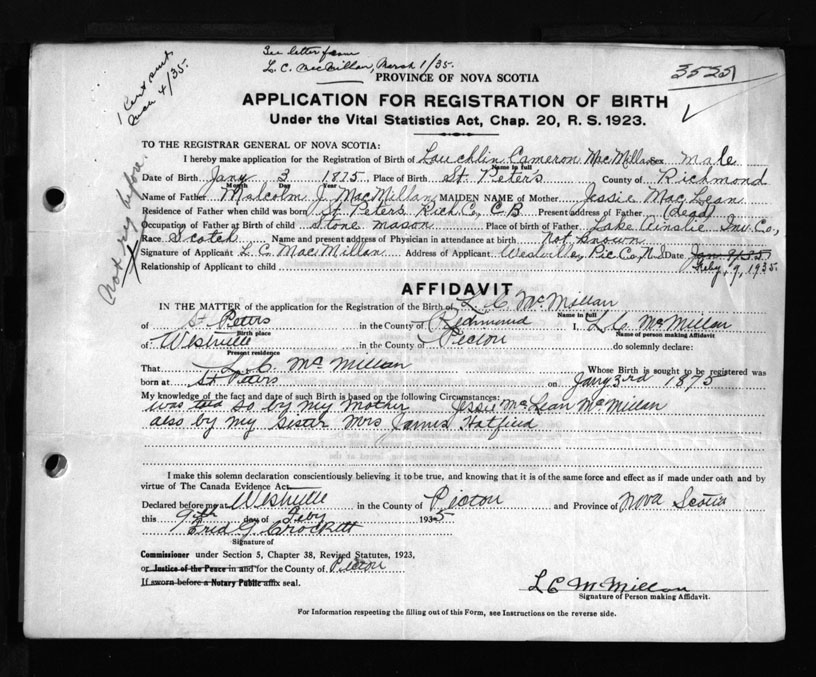 See letter from
L. C. MacMillan, March 1/35.
3525
1 Cert sent
4/35.
Not reg before.
PROVINCE OF NOVA SCOTIA
APPLICATION FOR REGISTRATION OF BIRTH
Under the Vital Statistics Act, Chap. 20, R. S. 1923.
TO THE REGISTRAR GENERAL OF NOVA SCOTIA:
I hereby make application for the Registration of Birth of Lauchlin Cameron MacMillan Sex male
Name in full
Date of Birth Jany 3 1875 Place of Birth St. Peter's County of Richmond
Month Day Year
Name of Father Malcolm J. MacMillan MAIDEN NAME of Mother Jessie MacLean
Residence of Father when child was born St. Peters Rich Co., C.B Present address of Father (Dead)
Occupation of Father at Birth of child Stone mason Place of birth of Father Lake Ainslie Inv. Co.,
Race Scotch Name and present address of Physician in attendance at birth not known
Signature of Applicant L. C. MacMillan Address of Applicant Westville, Pic Co, N.S Date Jan 9/35
Relationship of Applicant to child Feby, 9, 1935.
AFFIDAVIT
IN THE MATTER of the application for the Registration of the Birth of L. C McMillan
Name in full
of St Peters in the County of Richmond I, L C. McMillan
Birth place Name of person making Affidavit
of Westville in the County of Pictou do solemnly declare:
Present residence
That L. C. McMillan Whose Birth is sought to be registered was
born at St Peters on Jany 3rd 1875
My knowledge of the fact and date of such Birth is based on the following Circumstances:
was told so by my mother Jessie McLean McMillan
also by my sister Mrs James Hatfield
I make this solemn declaration conscientiously believing it to be true, and knowing that it is of the same force and effect as if made under oath and by
virtue of The Canada Evidence Act.
Declared before me at Westville in the County of Pictou and Province of Nova Scotia
this 9th day of Feby 1935
Fred G. Crockett
Signature of
Commissioner under Section 5, Chapter 38, Revised Statutes, 1923,
or Justice of the Peace in and for the County of Pictou
If sworn before a Notary Public affix seal.
L C McMillan
Signature of Person making Affidavit.
For Information respecting the filling out of this Form, see Instructions on the reverse side.